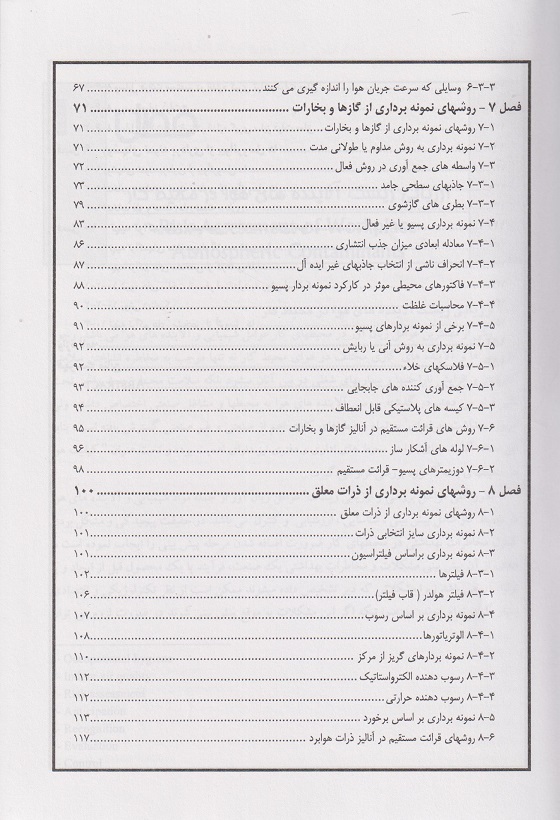 ۶-۳-۳ وسایلی که سرعت جریان هوا را اندازه گیری می کنند ۶۷
فصل ۷ - روشهای نمونه برداری از گازها و بخارات ۷۱
۷-۱ روشهای نمونه برداری از گازها و بخارات ۷۱
۷-۲ نمونه برداری به روش مداوم یا طولانی مدت ۷۱
۷-۳ واسطه های جمع آوری در روش فعال ۷۲
۷-۳-۱ جاذبهای سطحی جامد ۷۳
۷-۳-۲ بطری های گازشوی ۷۹
۷-۴ نمونه برداری پسیو یا غیر فعال ۸۳
۷-۴-۱ معادله ابعادی میزان جذب انتشاری ۸۶
۷-۴-۲ انحراف ناشی از انتخاب جاذبهای غیر ایده آل ۸۷
۷-۴-۳ فاکتورهای محیطی موثر در کارکرد نمونه بردار پسیو ۸۸
۷-۴-۴ محاسبات غلظت ۹۰
۷-۴-۵ برخی از نمونه بردارهای پسیو ۹۱
۷-۵ نمونه برداری به روش آنی یا ربایش ۹۲
۷-۵-۱ فلاسکهای خلاء ۹۲
۷-۵-۲ جمع آوری کننده های جابجایی ۹۳
۷-۵-۳ کیسه های پلاستیکی قابل انعطاف ۹۴
۷-۶ روش های قرائت مستقیم در آنالیز گازها و بخارات ۹۵
۷-۶-۱ لوله های آشکار ساز ۹۶
۷-۶-۲ دوزیمترهای پسیو- قرائت مستقیم ۹۸
فصل ۸ - روشهای نمونه برداری از ذرات معلق ۱۰۰
۸-۱ روشهای نمونه برداری از ذرات معلق ۱۰۰
۸-۲ نمونه برداری سایز انتخابی ذرات ۱۰۱
۸-۳ نمونه برداری براساس فیلتراسیون ۱۰۱
۸-۳-۱ فیلترها ۱۰۲
۸-۳-۲ فیلتر هولدر ( قاب فیلتر) ۱۰۶
۸-۴ نمونه برداری بر اساس رسوب ۱۰۷
۸-۴-۱ الوتریاتورها ۱۰۸
۸-۴-۲ نمونه بردارهای گریز از مرکز ۱۱۰
۸-۴-۳ رسوب دهنده الکترواستاتیک ۱۱۲
۸-۴-۴ رسوب دهنده حرارتی ۱۱۲
۸-۵ نمونه برداری بر اساس برخورد ۱۱۳
۸-۶ روشهای قرائت مستقیم در آنالیز ذرات هوابرد ۱۱۷